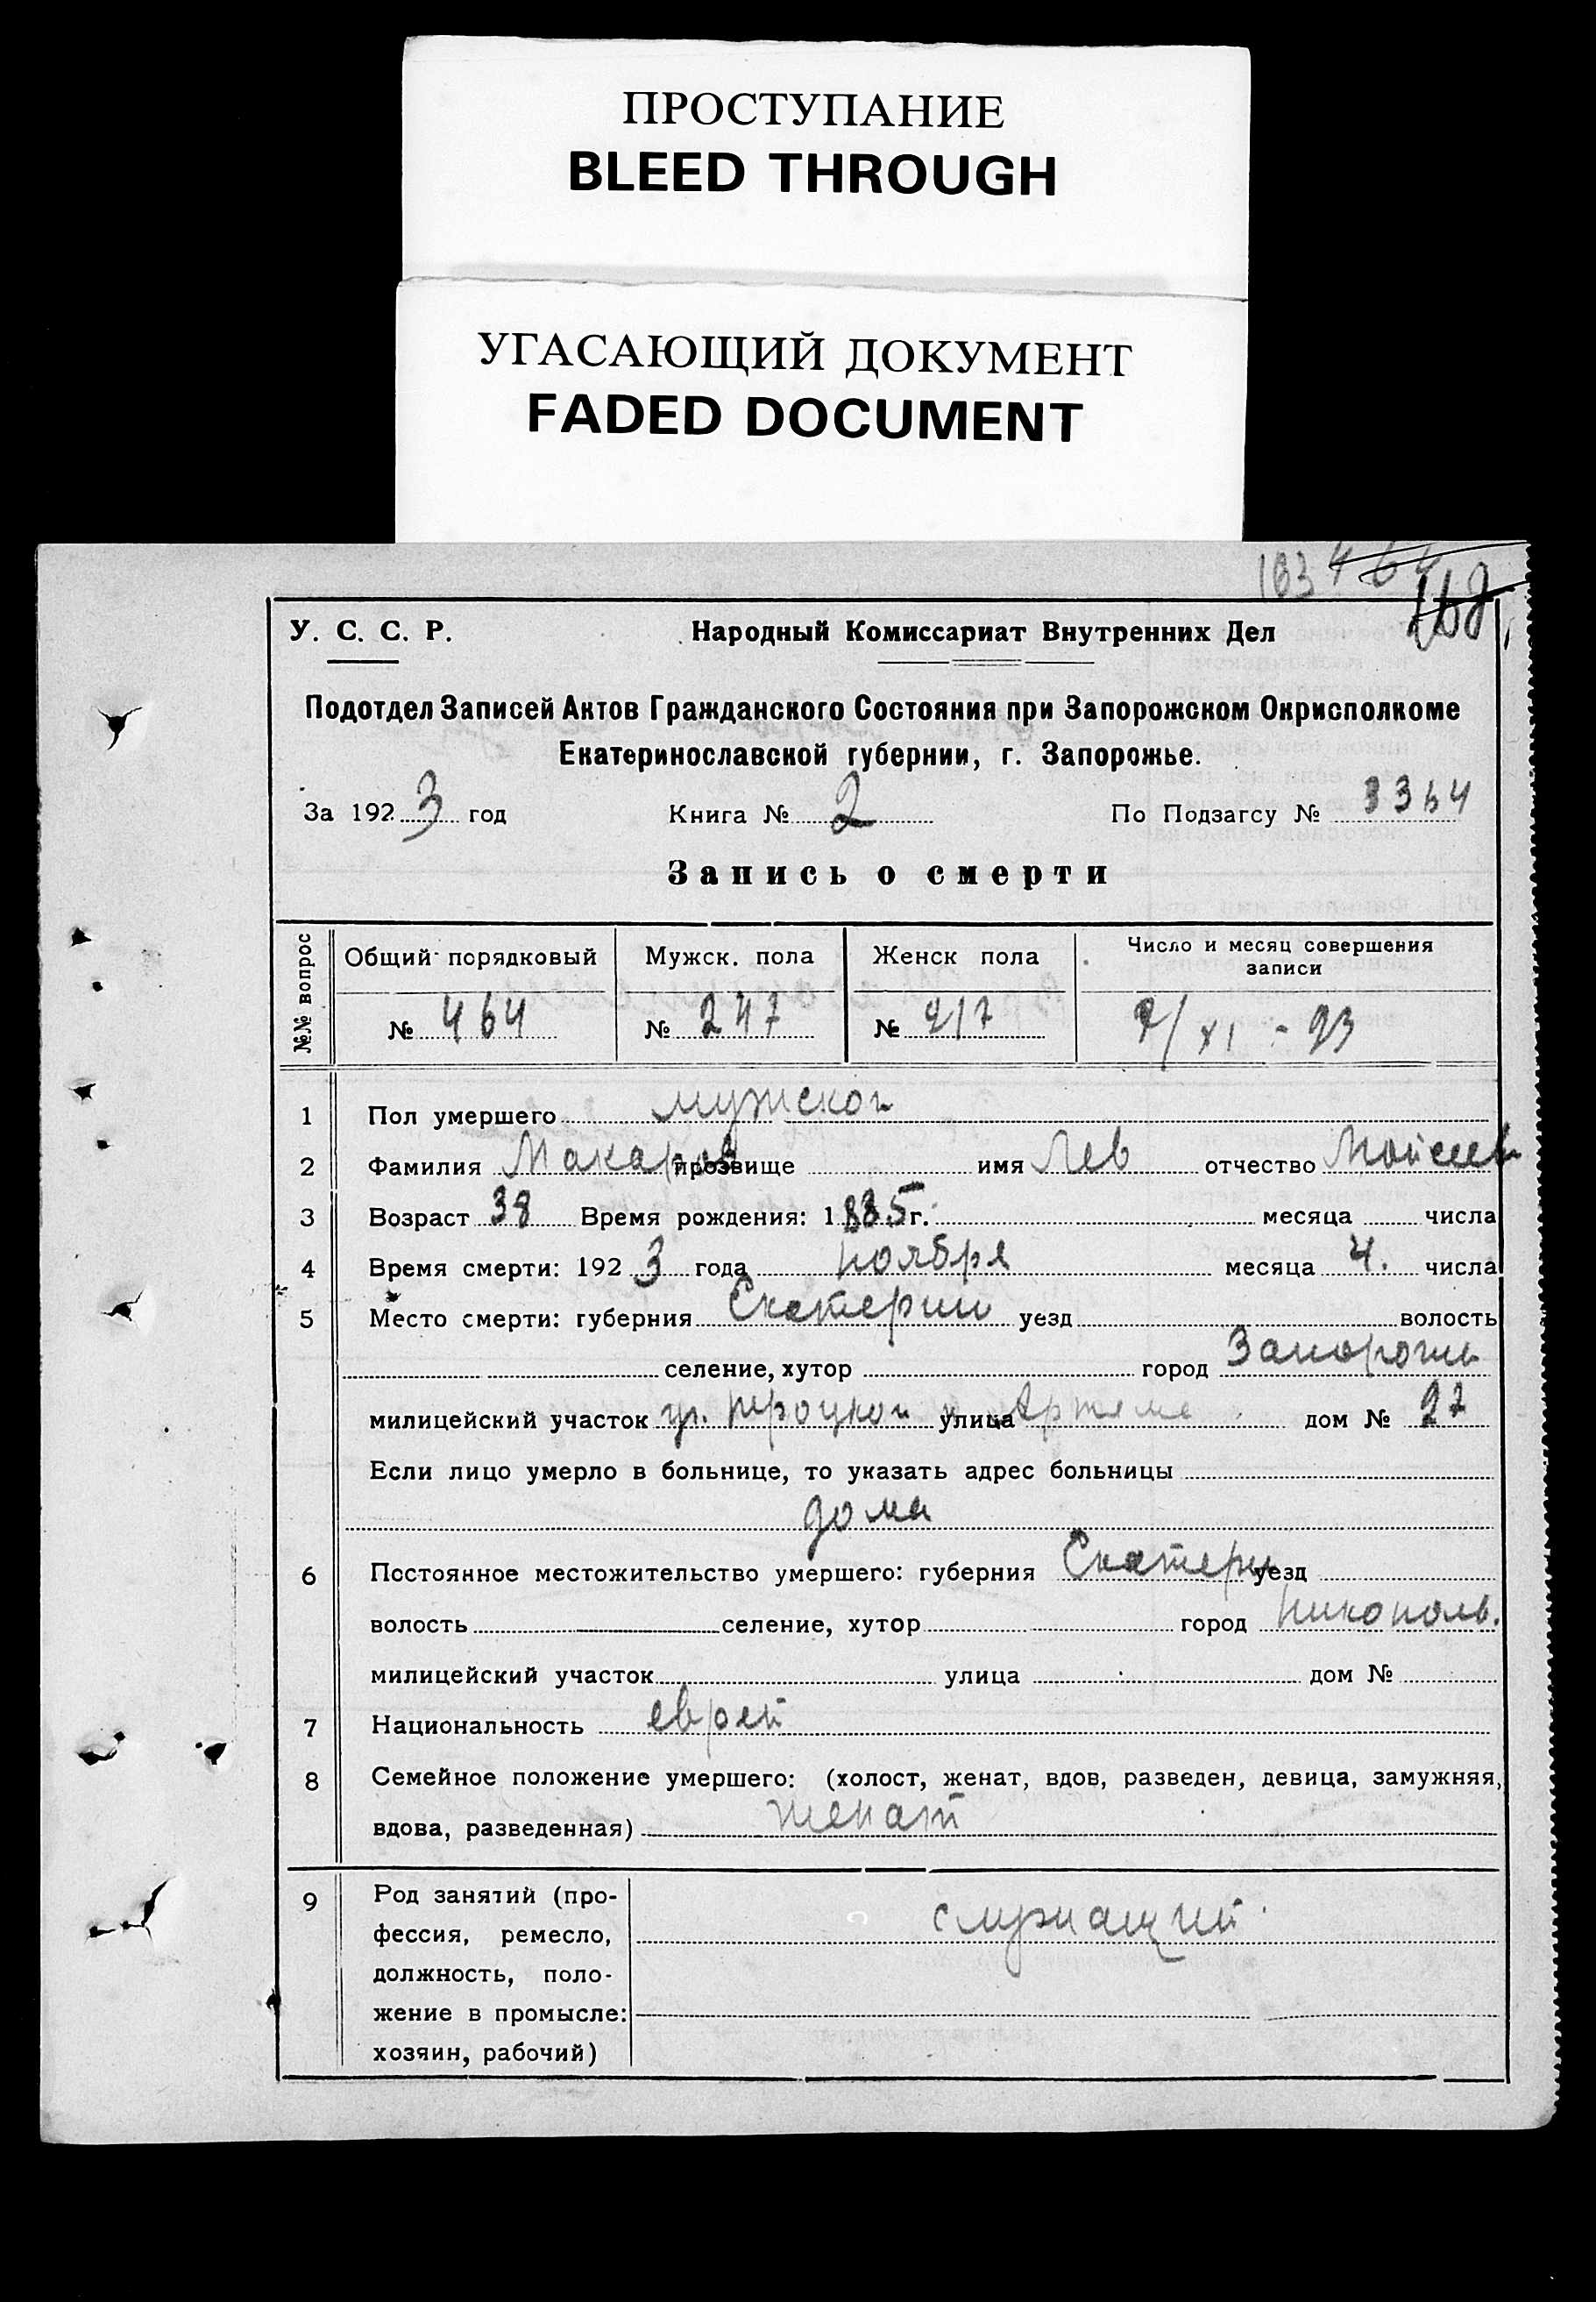 ПРОСТУПАНИЕ
BLEED THROUGH
УГАСАЮЩИЙ ДОКУМЕНТ
FADED DOCUMENT
163 464
У. С. С. Р. Народный Комиссариат Внутренних Дел
Подотдел Записей Актов Гражданского Состояния при Запорожском Окрисполкоме
Екатеринославской губернии, г. Запорожье.
За 192 3 год Книга № 2 По Подзагсу № 3364
Запись о смерти
№№ вопрос Общий порядковый Мужск. пола Женск пола Число и месяц совершения
записи
№ 464 № 247 № 217 7/XI - 23
1 Пол умершего мужской
2 Фамилия Макаров прозвище имя Лев отчество Моисеев
3 Возраст 38 Время рождения: 1885 г. месяца числа
4 Время смерти: 192 3 года ноября месяца 4. числа
5 Место смерти: губерния Екатерин уезд волость
селение, хутор город Запорожь
милицейский участок ул. Троцкой улица Артема дом № 27
Если лицо умерло в больнице, то указать адрес больницы
дома
6 Постоянное местожительство умершего: губерния Екатерин уезд
волость селение, хутор город Никополь.
милицейский участок улица дом №
7 Национальность еврей
8 Семейное положение умершего: (холост, женат, вдов, разведен, девица, замужняя,
вдова, разведенная) женат
9 Род занятий (про-
фессия, ремесло, служащий
должность, поло-
жение в промысле:
хозяин, рабочий)